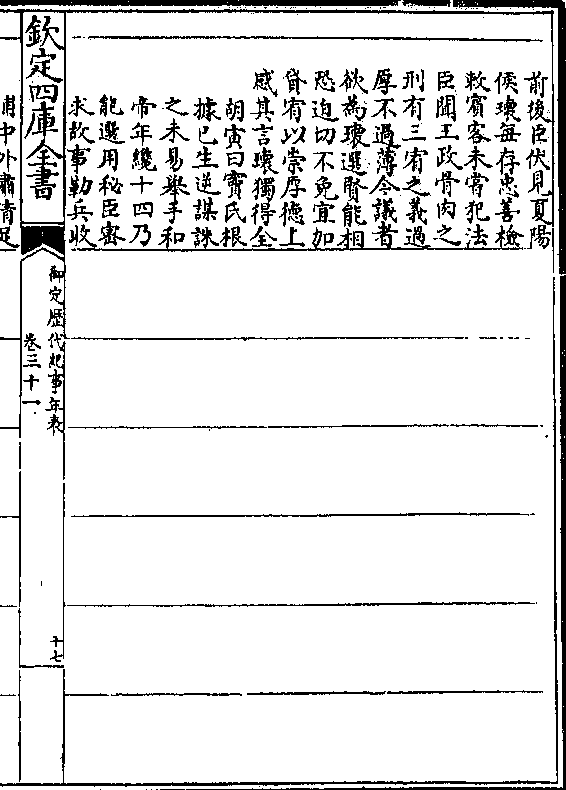 前後臣伏見夏陽
侯瓌每存忠善檢
敕賔客未嘗犯法
臣聞王政骨肉之
刑有三宥之義過
厚不過薄今議者
欲為瓌選嚴能相
恐迫切不免宜加
貸宥以崇厚德上
感其言瓌獨得全
胡寅曰竇氏根
據已生逆謀誅
之未易舉手和
帝年纔十四乃
能選用秘臣密
求故事勒兵收
欽定四庫全書
御定歴代紀事年表
卷三十一
十七
捕中外肅清足